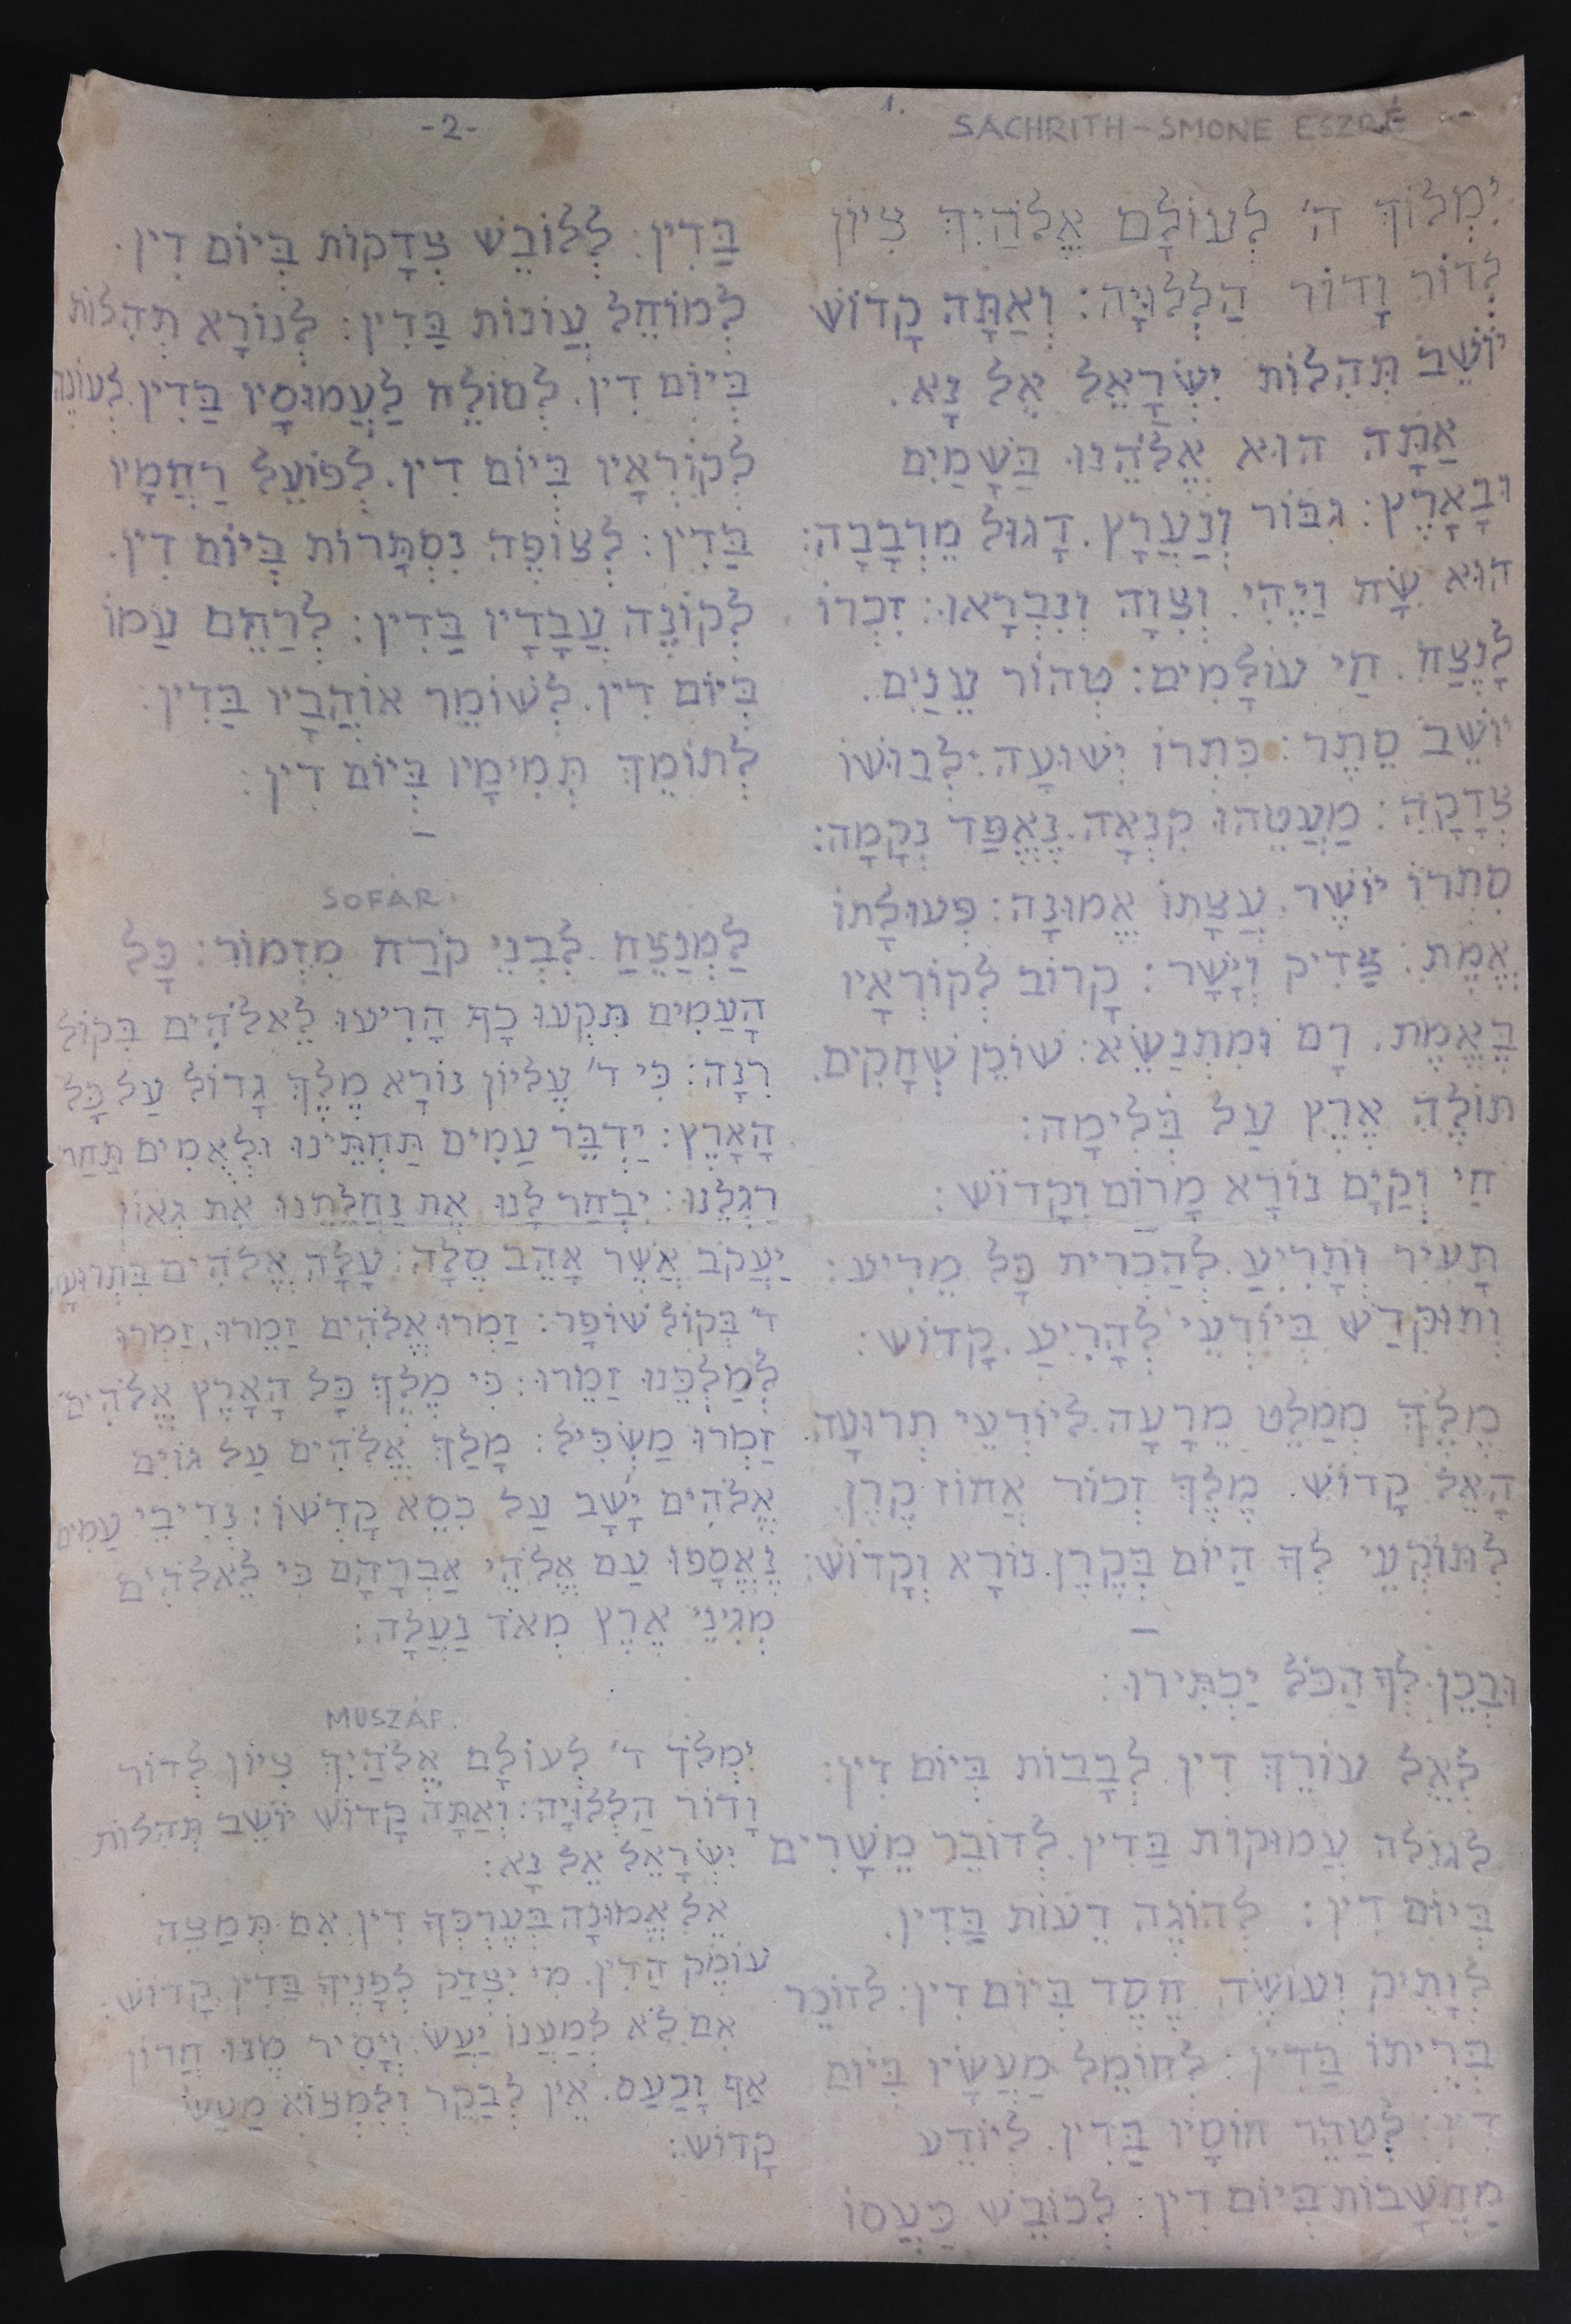 1.
SACHRITH - SMONE ESZRÉ
יִמְלוֹךְ ה' לְעוֹלָם אֱלֹהַיִךְ צִיוֹן
לְדוֹר וָדוֹר הַלְלוּיָה: וְאַתָּה קָדוֹשׁ
יוֹשֵׁב תְּהִלוֹת יִשְׂרָאֵל אֵל נָא.
אַתָּה הוּא אֱלֹהֵנוּ בַּשָׁמַיִם
וּבָאָרֶץ: גִבּוֹר וְנַעֲרָץ. דָגוּל מֵרְבָבָה:
הוּא שָׂח וַיֶהִי. וְצִוָה וְנִבְרָאוּ: זִכְרוֹ
לָנֶצַח. חַי עוֹלָמִים: טְהוֹר עֵנַיִם.
יוֹשֵׁב סֵתֶר: כִּתְרוֹ יְשׁוּעָה: לְבוּשׁוֹ
צְדָקָה: מַעֲטֵהוּ קִנְאָה. נֶאֱפַּד נְקָמָה:
סִתְרוֹ יוֹשֶׁר. עֲצָתוֹ אֱמוּנָה: פְּעוּלָתוֹ
אֱמֶת: צַדִיק וְיָשָׁר: קָרוֹב לְקוֹרְאָיו
בֶּאֱמֶת. רָם וּמִתְנַשֵׂא: שׁוֹכֵן שְׁחָקִים.
תוֹלֶה אֶרֶץ עַל בְּלִימָה:
חַי וְקַיָם נוֹרָא מָרוֹם וְקָדוֹשׁ:
תָּעִיר וְתָרִיעַ. לְהַכְרִית כָּל מֵרִיע:
וְתוּקְדַשׁ בְּיוֹדְעֵי לְהָרִיעַ. קָדוֹשׁ:
מֶלֶךְ מְמַלֵט מֵרָעָה. לְיוֹדְעֵי תְרוּעָה.
הָאֵל קָדוֹשׁ. מֶלֶךְ זְכוֹר אֲחוּז קֶרֶן.
לְתוֹקְעֵי לְךָ הַיוֹם בְּקֶרֶן. נוֹרָא וְקָדוֹשׁ:
וּבְכֵן לְךָ הַכֹּל יַכְתִּירוּ:
לְאֵל עוֹרֵךְ דִין. לְבָבוֹת בְּיוֹם דִין:
לְגוֹלֶה עֲמוּקוֹת בַּדִין. לְדוֹבֵר מֵשָׁרִים
בְּיוֹם דִין: לְהוֹגֶה דֵעוֹת בַּדִין.
לְוָתִיק וְעוֹשֶׂה חֶסֶד בְּיוֹם דִין: לְזוֹכֵר
בְּרִיתוֹ בַּדִין: לְחוֹמֵל מַעֲשָׂיו בְּיוֹם
דִין: לְטַהֵר חוֹסָיו בַּדִין. לְיוֹדֵע
מַחֲשָׁבוֹת בְּיוֹם דִין: לְכוֹבֵשׁ כַּעֲסוֹ
-2-
בַּדִין: לְלוֹבֵשׁ צְדָקוֹת בְּיוֹם דִין.
לְמוֹחֵל עֲוֹנוֹת בַּדִין: לְנוֹרָא תְהִלוֹת
בְּיוֹם דִין. לְסוֹלֵחַ לַעֲמוּסָיו בַּדִין. לְעוֹנֶה
לְקוֹרְאָיו בְּיוֹם דִין. לְפוֹעֵל רַחֲמָיו
בַּדִין: לְצוֹפֶה נִסְתָּרוֹת בְּיוֹם דִין.
לְקוֹנֶה עֲבָדָיו בַּדִין: לְרַחֵם עַמוֹ
בְּיוֹם דִין. לְשׁוֹמֵר אוֹהֲבָיו בַּדִין:
לְתוֹמֵךְ תְּמִימָיו בְּיוֹם דִין:
SOFÁR.
לַמְנַצֵחַ לִבְנֵי קֹרַח מִזְמוֹר: כָּל
הָעַמִים תִּקְעוּ כָף הָרִיעוּ לֵאלֹהִים בְּקוֹל
רִנָה: כִּי ד' עֶלִיוֹן נוֹרָא מֶלֶךְ גָדוֹל עַל כָּל
הָאָרֶץ: יַדְבֵּר עַמִים תַּחְתֵּינוּ וּלְאֻמִים תַּחַת
רַגְלֵנוּ: יִבְחַר לָנוּ אֶת נַחֲלָתֵנוּ אֶת גְאוֹן
יַעֲקֹב אֲשֶׁר אָהֵב סֶלָה: עָלָה אֱלֹהִים בִּתְרוּעָה
ד' בְּקוֹל שׁוֹפָר: זַמְרוּ אֱלֹהִים זַמֵרוּ, זַמְרוּ
לְמַלְכֵּנוּ זַמֵרוּ: כִּי מֶלֶךְ כָּל הָאָרֶץ אֱלֹהִים
זַמְרוּ מַשְׂכִּיל: מָלַךְ אֱלֹהִים עַל גוֹיִם
אֱלֹהִים יָשַׁב עַל כִּסֵא קָדְשׁוֹ: נְדִיבֵי עַמִים
נֶאֱסָפוּ עַם אֱלֹהֵי אַבְרָהָם כִּי לֵאלֹהִים
מְגִינֵי אֶרֶץ מְאֹד נַעֲלָה:
MUSZÁF.
יִמְלֹךְ ד' לְעוֹלָם אֱלֹהַיִךְ צִיוֹן לְדוֹר
וָדוֹר הַלְלוּיָה: וְאַתָּה קָדוֹשׁ יוֹשֵׁב תְּהִלוֹת
יִשְׂרָאֵל אֵל נָא:
אֵל אֱמוּנָה בְּעֶרְכְּךָ דִין אִם תְּמַצֶה
עוֹמֶק הַדִין. מִי יִצְדַק לְפָנֶיךָ בַּדִין קָדוֹשׁ:
אִם לֹא לְמַעֲנוֹ יַעֲשׂ וְיָסִיר מֶנוּ חֲרוֹן
אַף וָכַעַס. אֵין לְבַקֵר וְלִמְצוֹא מַעַשׂ
קָדוֹשׁ: